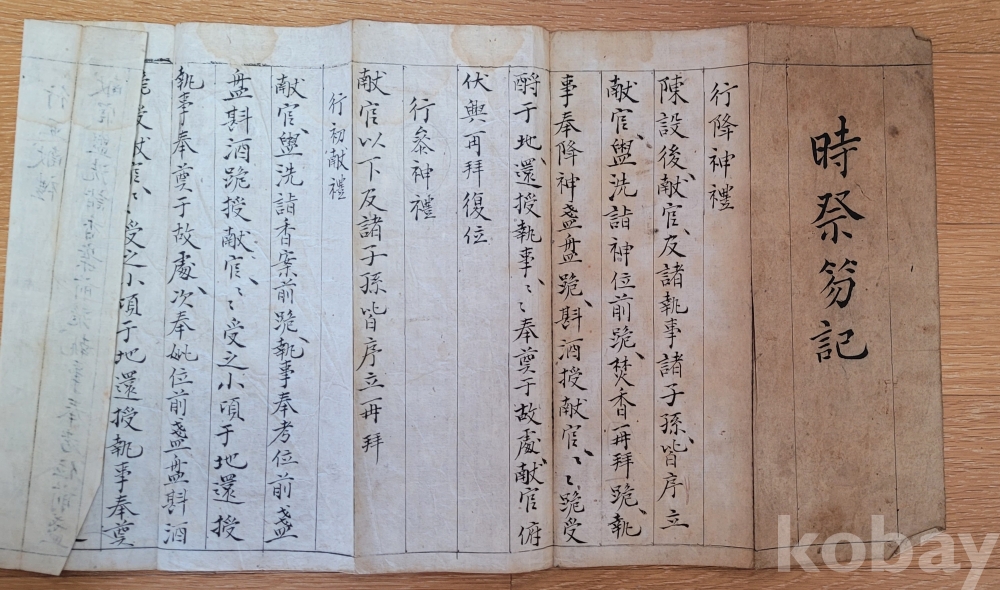 時祭笏記
行降神禮
陳設後、献官及諸執事諸子孫、皆序立
献官、盥洗詣神位前跪、焚香再拜跪、執
事奉降神盞盘跪、斟酒授献官、〻跪受
酹于地、還授執事、〻奉奠于故處、献官俯
伏興再拜復位
行叅神禮
献官以下及諸子孫皆序立再拜
行初献禮
献官、盥洗詣香案前跪、執事奉考位前盞
盘斟酒跪授献官、〻受之小頃于地還授
執事奉奠于故處、次奉妣位前盞盘斟酒
跪授献官、〻受之小頃于地還授執事奉奠
kobay